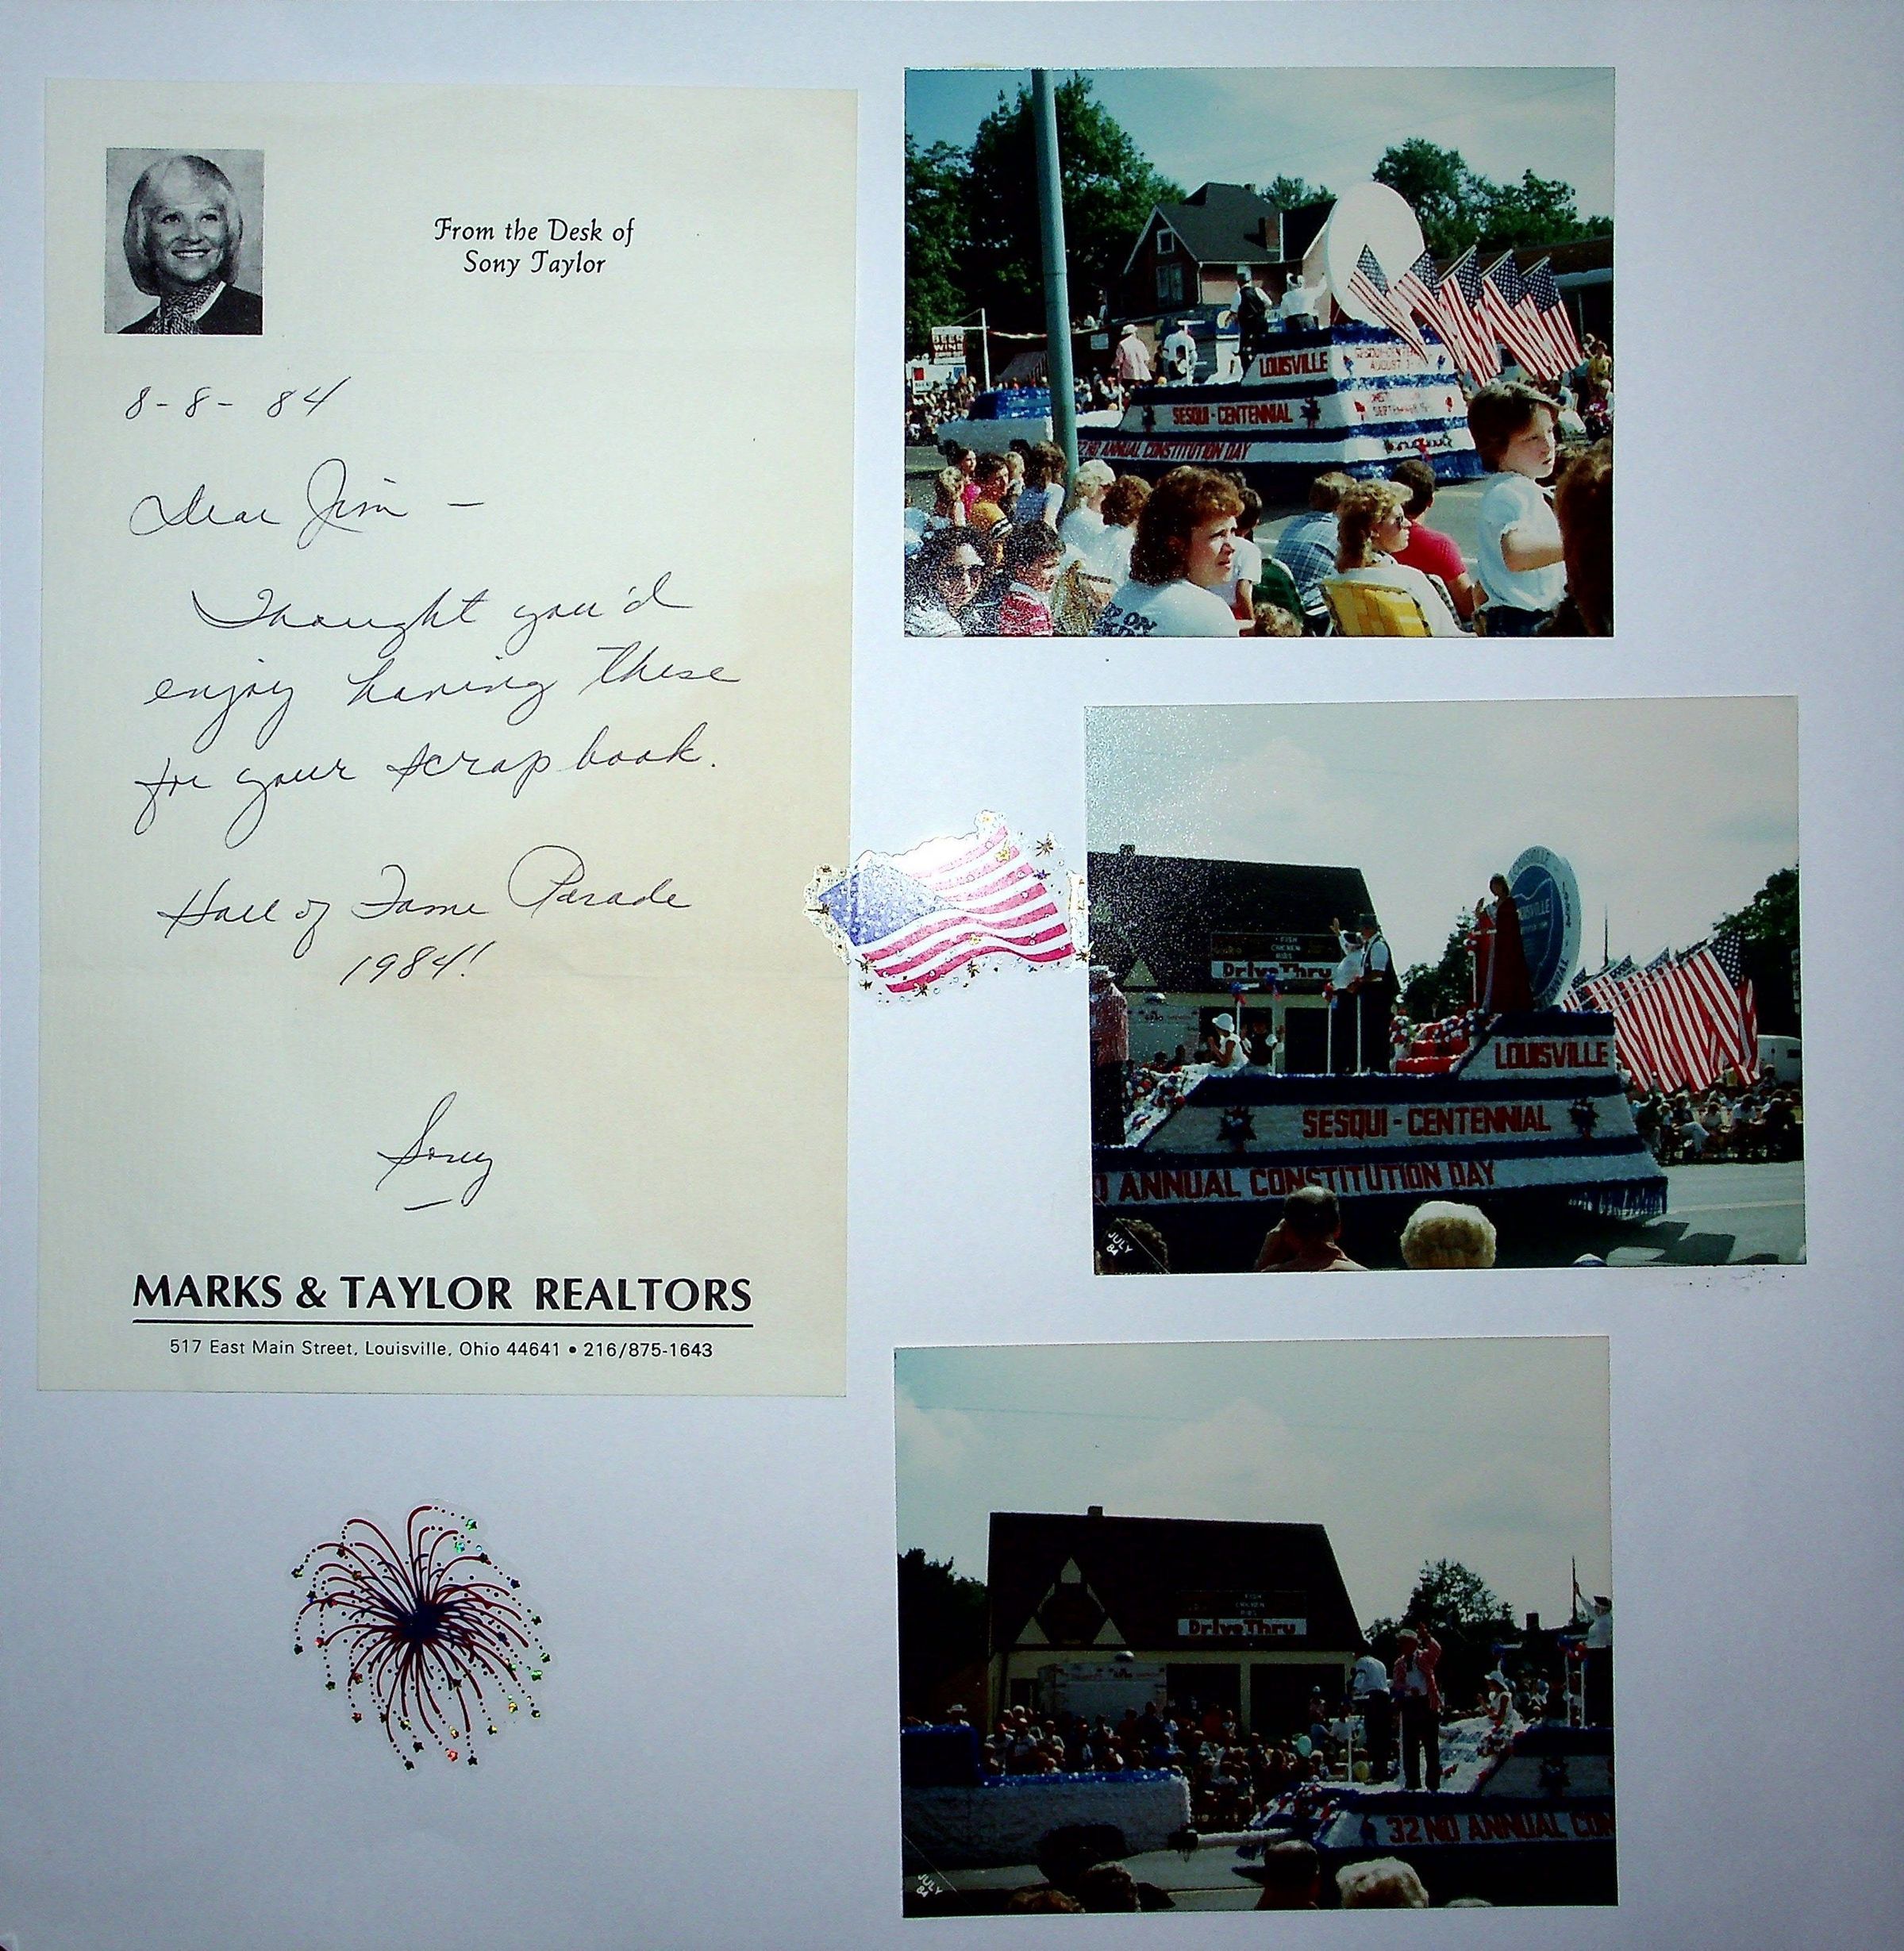 From the Desk of
Sony Taylor
8-8-84
Dear Jim -
Thought you'd
enjoy having these
for your scrap book.
Hall of Fame Parade
1984!
Sony
MARKS & TAYLOR REALTORS
517 East Main Street, Louisville, Ohio 44641 • 216/875-1643
BEER
WINE
LOUISVILLE
SESQUI-CENTENNIAL
AUGUST
SESQUI-CENTENNIAL
32ND ANNUAL CONSTITUTION DAY
LOUISVILLE
LOUISVILLE
FISH
CHICKEN
RIBS
Drive Thru
LOUISVILLE
SESQUI-CENTENNIAL
D ANNUAL CONSTITUTION DAY
JULY
84
FISH
CHICKEN
RIBS
Drive Thru
32ND ANNUAL CON
JULY
84